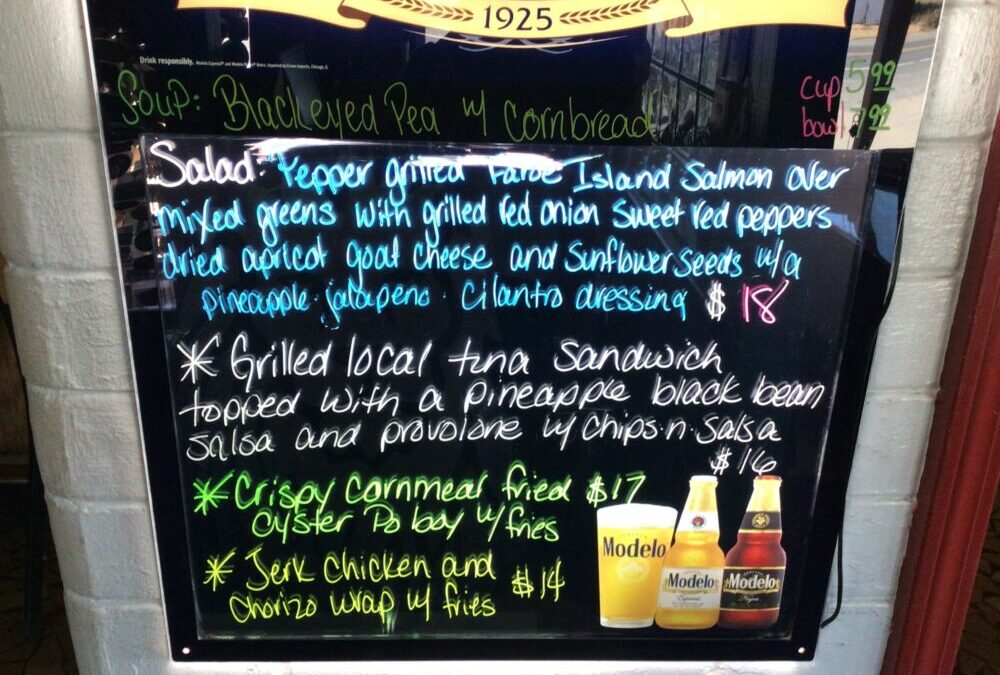 1925
Drink responsibly.
Soup: Blackeyed Pea w/ Cornbread
cup 5.99
bowl 7.99
Salad: Pepper grilled Faroe Island Salmon over
mixed greens with grilled red onion sweet red peppers
dried apricot goat cheese and sunflower seeds w/a
pineapple · jalapeno · cilantro dressing $ 18
* Grilled local tuna sandwich
topped with a pineapple black bean
salsa and provolone w/ chips n salsa
$16
* Crispy cornmeal fried $17
oyster Po boy w/ fries
* Jerk chicken and
chorizo wrap w/ fries $14
Modelo
Modelo
Especial
Modelo
Negra